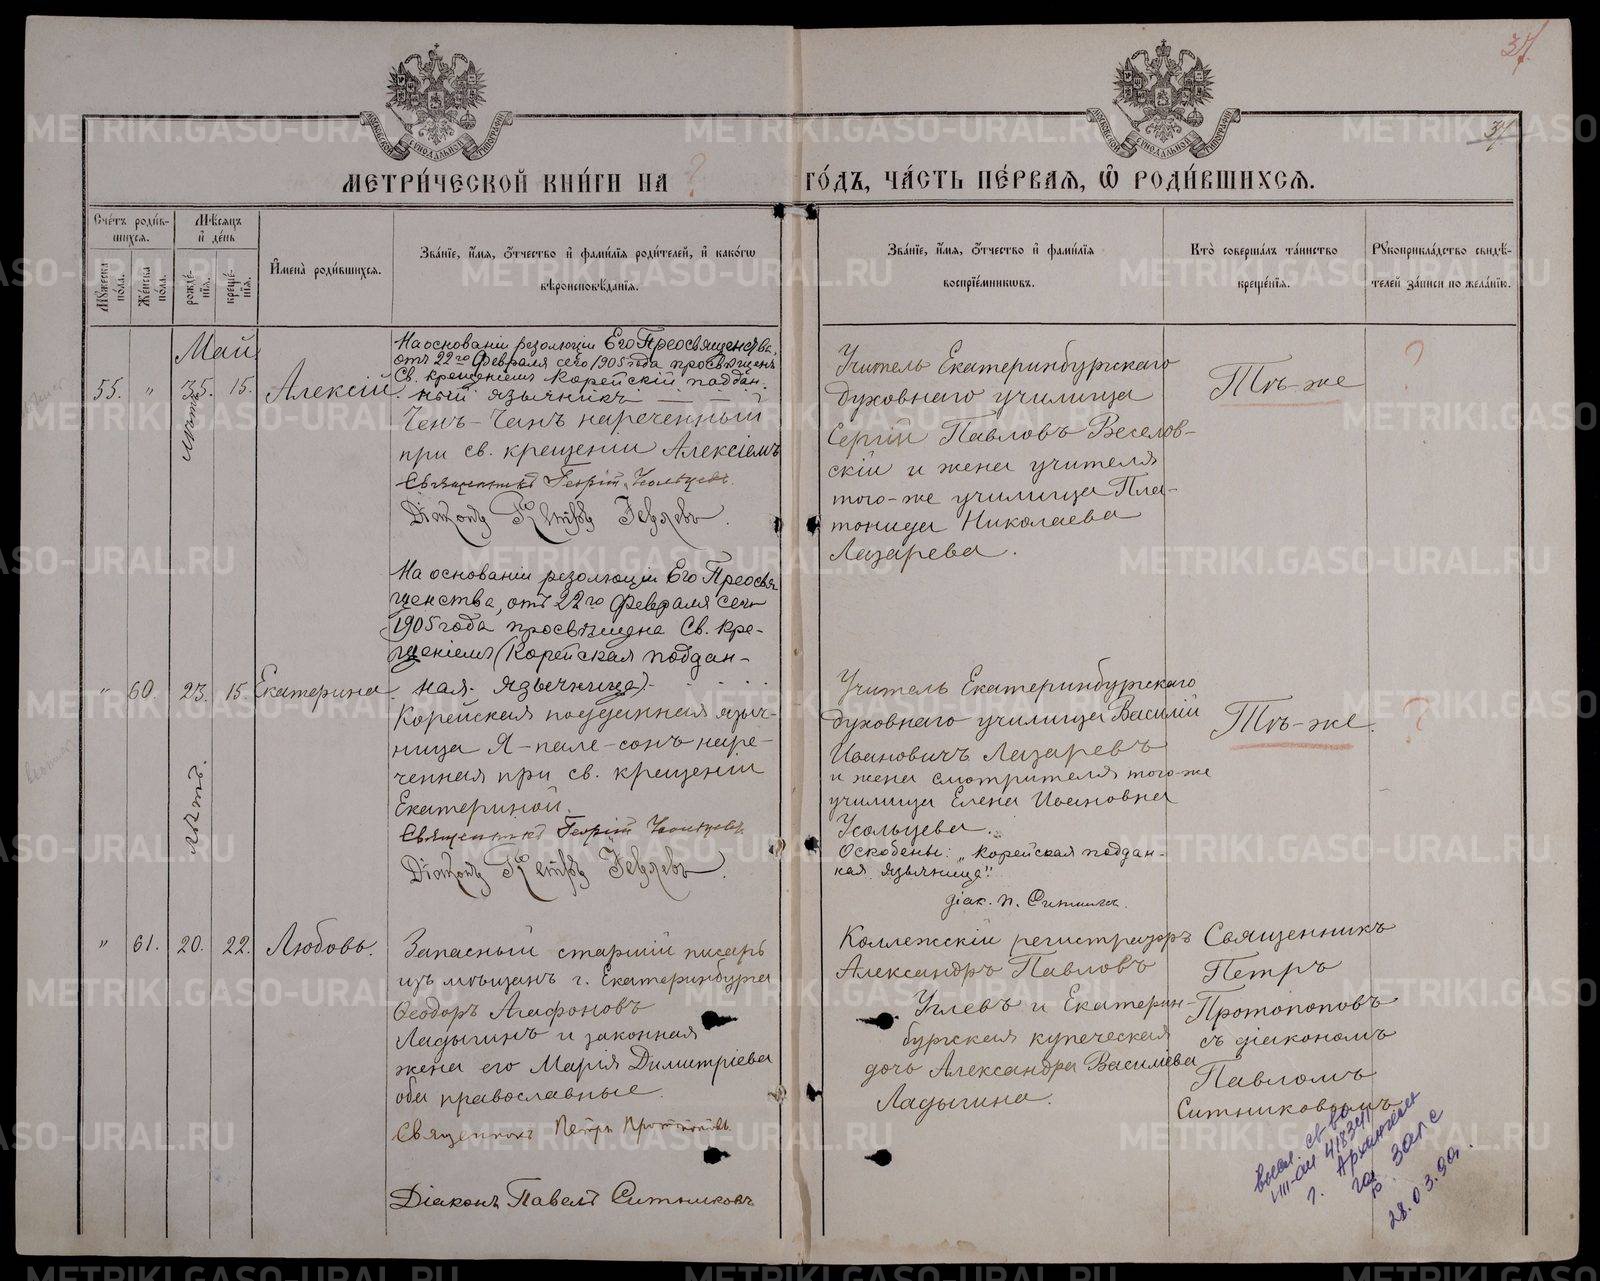 37
37
МЕТРИ́ЧЕСКОЙ КНИ́ГИ НА ? ГО́ДЪ, ЧА́СТЬ ПЕ́РВАЯ, Ѡ РОДИ́ВШИХСѦ.
МОСКОВСКОЙ СѴНОДАЛЬНОЙ ТИПОГРАФІИ
МОСКОВСКОЙ СѴНОДАЛЬНОЙ ТИПОГРАФІИ
Сче́тъ роди́в-
шихся.
Мѣ́сяцъ
и҆ де́нь
Мꙋ́жеска по́ла.
Же́нска по́ла.
рожде́-
нїя.
креще́-
нїя.
И҆мена̀ роди́вшихся.
Зва́нїе, и҆́мя, ѻ҆́тчество и҆ фами́лїя роди́телей, и҆ како́гѡ
вѣроисповѣ́данїя.
Зва́нїе, и҆́мя, ѻ҆́тчество и҆ фами́лїя
воспрїе́мниковъ.
Кто̀ соверша́лъ та́инство
креще́нїя.
Рꙋкоприкла́дство свидѣ́-
телей за́писи по жела́нїю.
Май
55. " 35. 15. Алексій.
лѣтъ
На основаніи резолюціи Его Преосвященства,
отъ 22го Февраля сего 1905 года просвѣщенъ
Св. крещеніемъ Корейскій поддан-
ный язычникъ
Ченъ-Чанъ нареченный
при св. крещеніи Алексіемъ
Священникъ Георгій Усольцевъ.
Діаконъ Петръ
Учитель Екатеринбургскаго
духовнаго училища
Сергій Павловъ Веселов-
скій и жена учителя
того-же училища Пла-
тонида Николаева
Лазарева.
Тѣ-же
?
" 60. 23. 15. Екатерина.
лѣтъ.
На основаніи резолюціи Его Преосвя-
щенства, отъ 22го февраля сего
1905 года просвѣщена Св. кре-
щеніемъ (Корейская поддан-
ная язычница)
Корейская подданная языч-
ница Я-пале-сонъ наре-
ченная при св. крещеніи
Екатериной.
Священникъ Георгій Усольцевъ
Діаконъ Петръ
Учитель Екатеринбургскаго
духовнаго училища Василій
Ивановичъ Лазаревъ
и жена смотрителя того-же
училища Елена Ивановна
Усольцева.
Оскоблены: „Корейская поддан-
ная язычница"
діак. П. Ситников.
Тѣ-же.
?
" 61. 20. 22. Любовь.
Запасный старшій писарь
изъ мѣщанъ г. Екатеринбурга
Ѳеодоръ Агафоновъ
Ладыгинъ и законная
жена его Марія Димитріева
оба православные.
Священникъ Петръ Протопоповъ
Діаконъ Павелъ Ситниковъ
Коллежскій регистраторъ
Александръ Павловъ
Углевъ и Екатерин-
бургская купеческая
дочь Александра Василіева
Ладыгина.
Священникъ
Петръ
Протопоповъ
съ діакономъ
Павломъ
Ситниковымъ
г.
28.03.90г.
METRIKI.GASO-URAL.RU